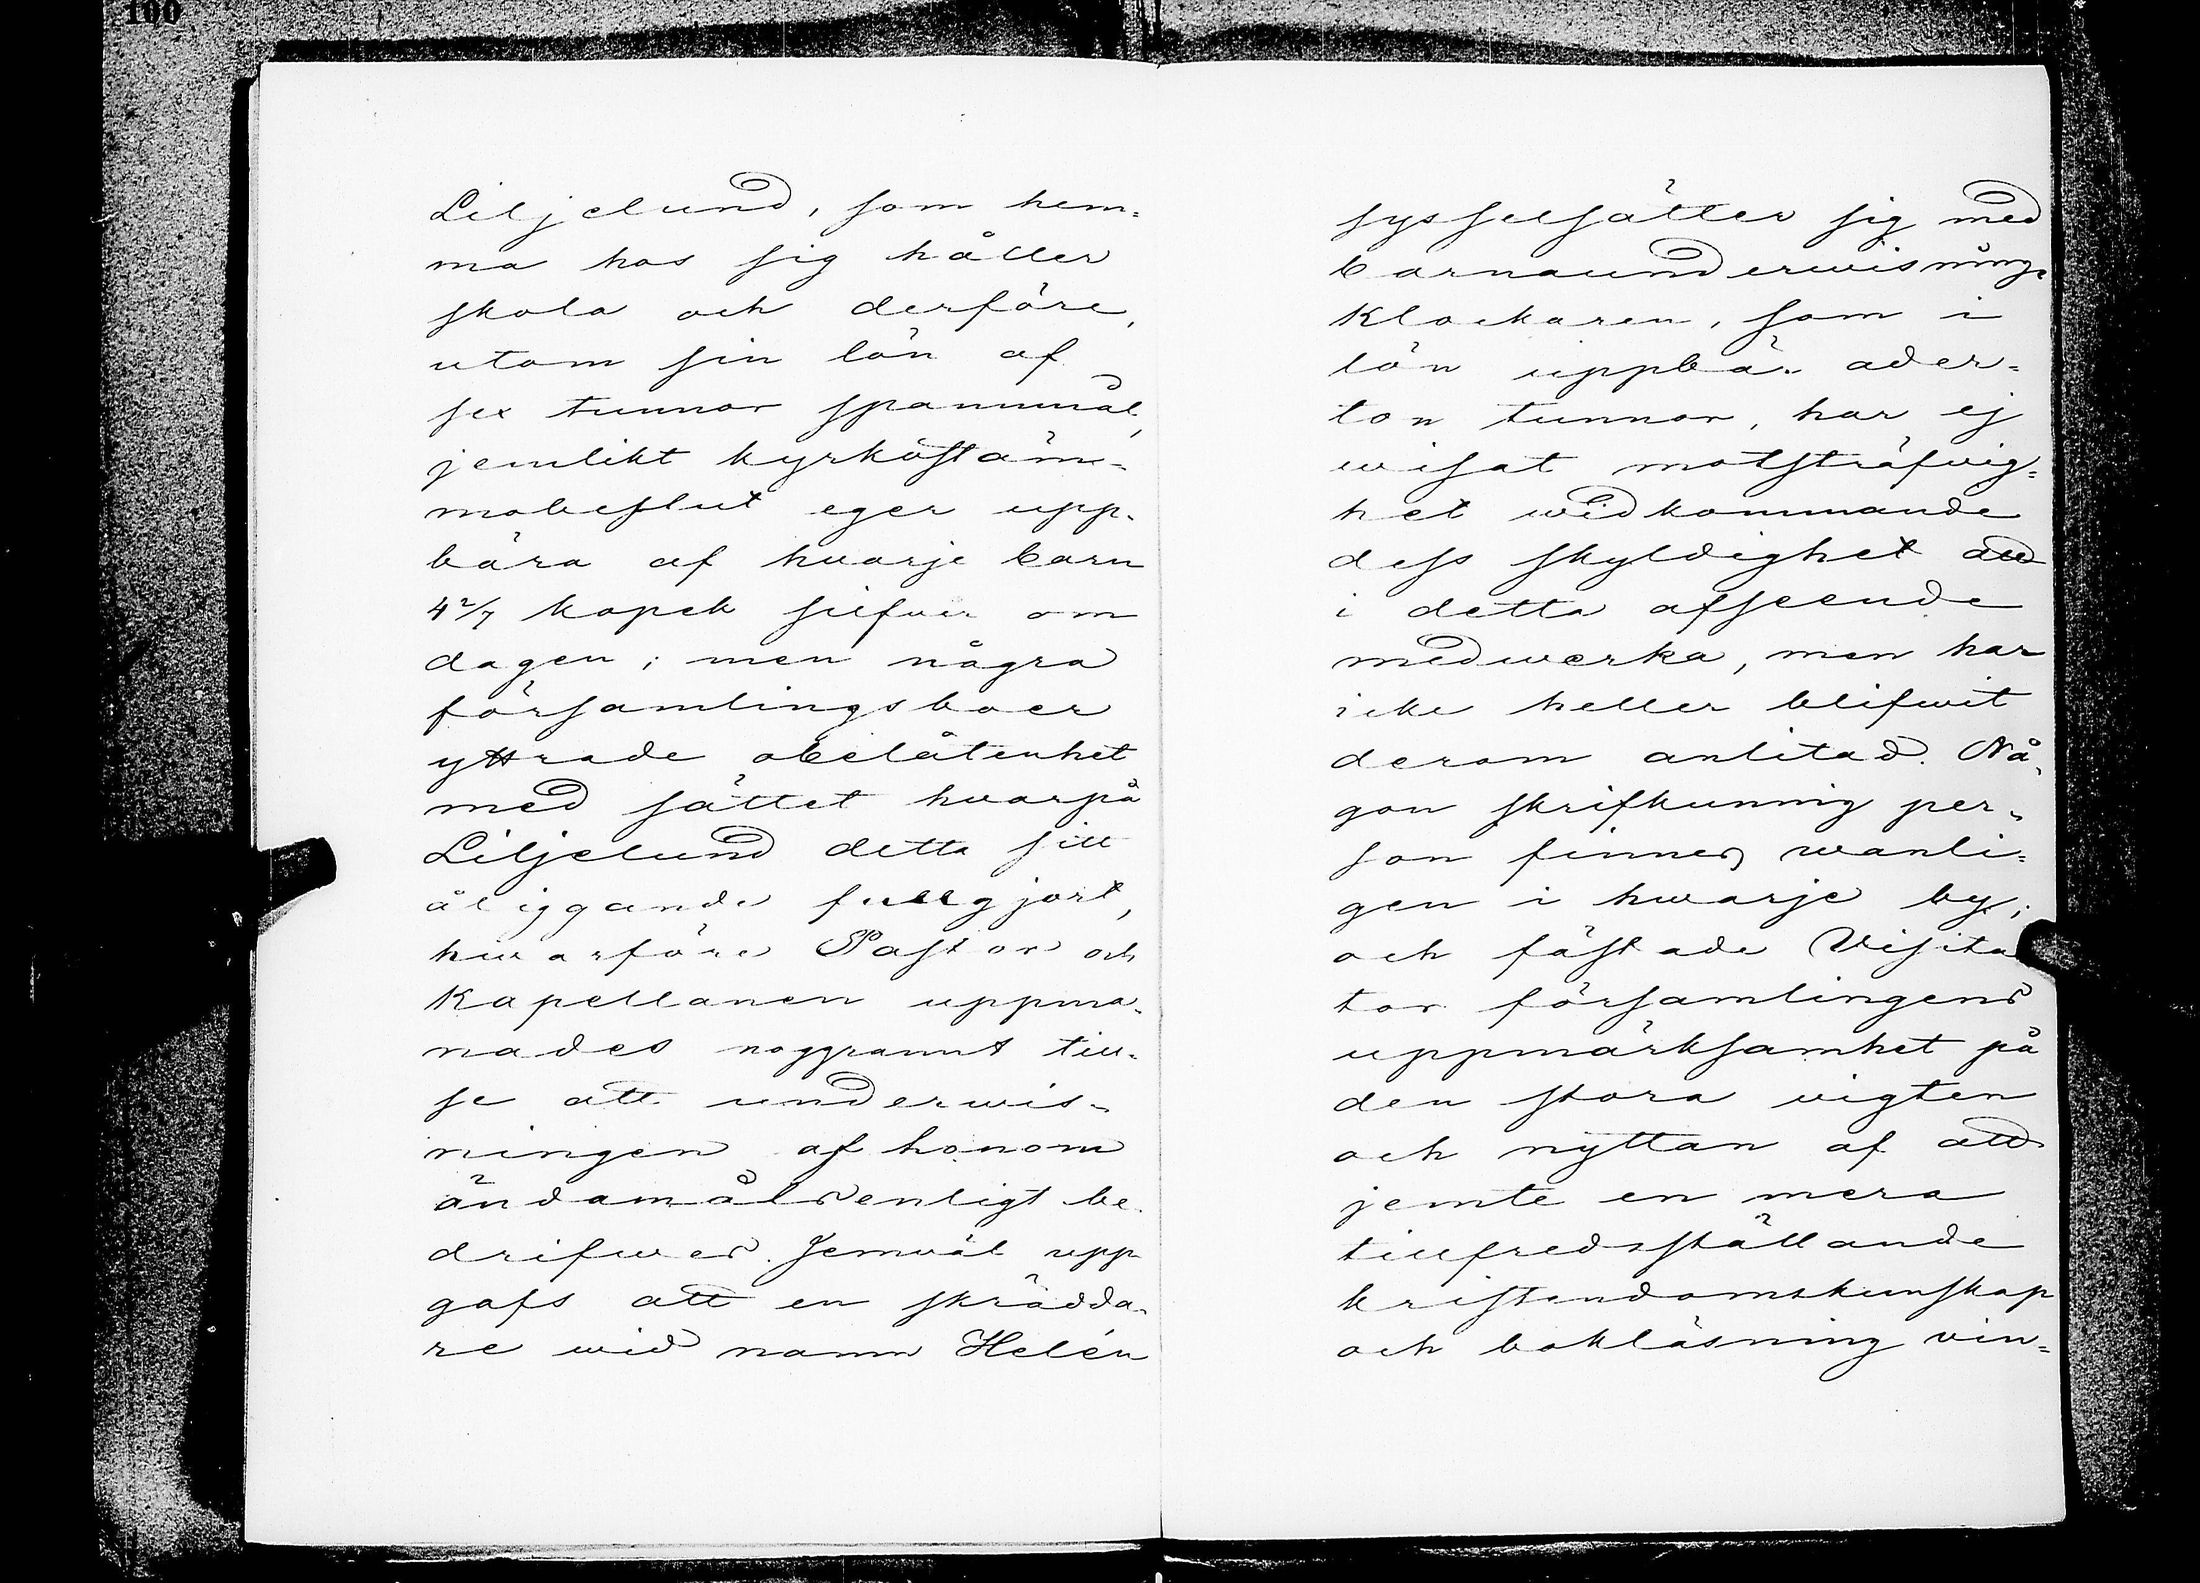 100
Liljelund, som hem=
ma hos sig håller
skola och derföre,
utom sin lön af
sex tunnor spannmål,
jemlikt kyrkostäm-
mobeslut eger upp-
bära af hvarje barn
4 2/7 kopek silfver om
dagen; men några
församlingsboer
yttrade obelåtenhet
med sättet hvarpå
Liljelund detta sitt
åliggande fullgjort,
hwarföre Pastor och
Kapellanen uppma-
nades noggrannt till-
se att underwis-
ningen af honom
ändamålsenligt be-
drifwes. Jemväl upp
gafs att en skrädda-
re wid namn Helén
sysselsätter sig med
barnaunderwisning.
Klockaren, som i
lön uppbär ader=
ton tunnor, har ej
wisat motsträfvig=
het widkommande
dess skyldighet att
i detta afseende
medwerka, men har
icke heller blifwit
derom anlitad. Nå-
gon skrifkunnig per-
son finnes wanli=
gen i hwarje by;
och fästade Visita
tor församlingens
uppmärksamhet på
den stora vigten
och nyttan af att
jemte en mera
tillfredsställande
kristendomskunskap
och bokläsning vin=